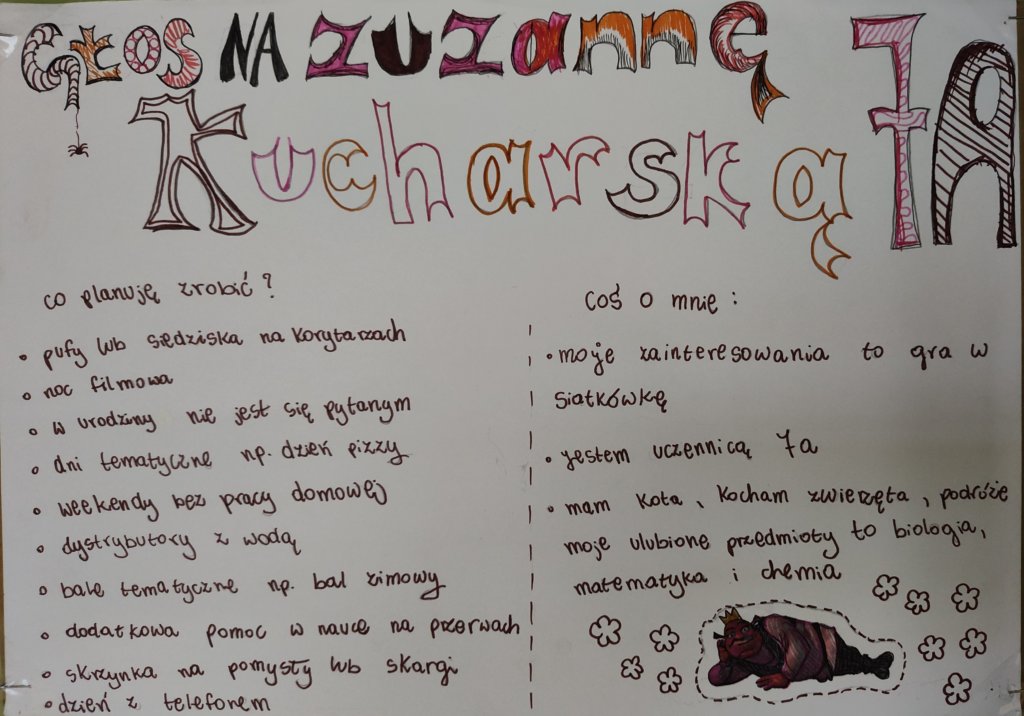 GŁOS NA ZUZANNĘ
Kucharską 7A
co planuję zrobić?
• pufy lub siedziska na korytarzach
• noc filmowa
• w urodziny nie jest się pytanym
• dni tematyczne np. dzień pizzy
• weekendy bez pracy domowej
• dystrybutory z wodą
• bale tematyczne np. bal zimowy
• dodatkowa pomoc w nauce na przerwach
• skrzynka na pomysły lub skargi
• dzień z telefonem
coś o mnie:
• moje zainteresowania to gra w
siatkówkę
• jestem uczennicą 7a
• mam kota, kocham zwierzęta, podróże
moje ulubione przedmioty to biologia,
matematyka i chemia